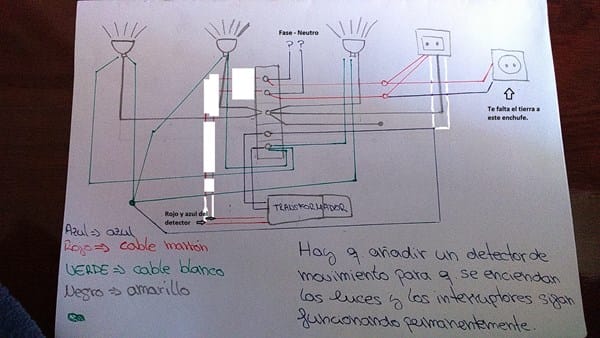 Fase - Neutro
? ?
Te falta el tierra a
este enchufe.
Rojo y azul del
detector
TRANSFORMADOR
Azul => azul
Rojo => cable marrón
VERDE => cable blanco
Negro => amarillo
Hay q. añadir un detector de
movimiento para q. se enciendan
las luces y los interruptores sigan
funcionando permanentemente.